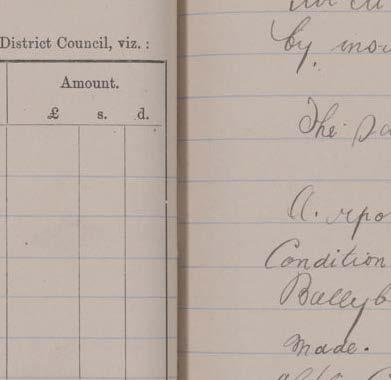 District Council, viz. :
Amount.
£ s. d.
by
The
A. repo
Condition
Ballyb
made.